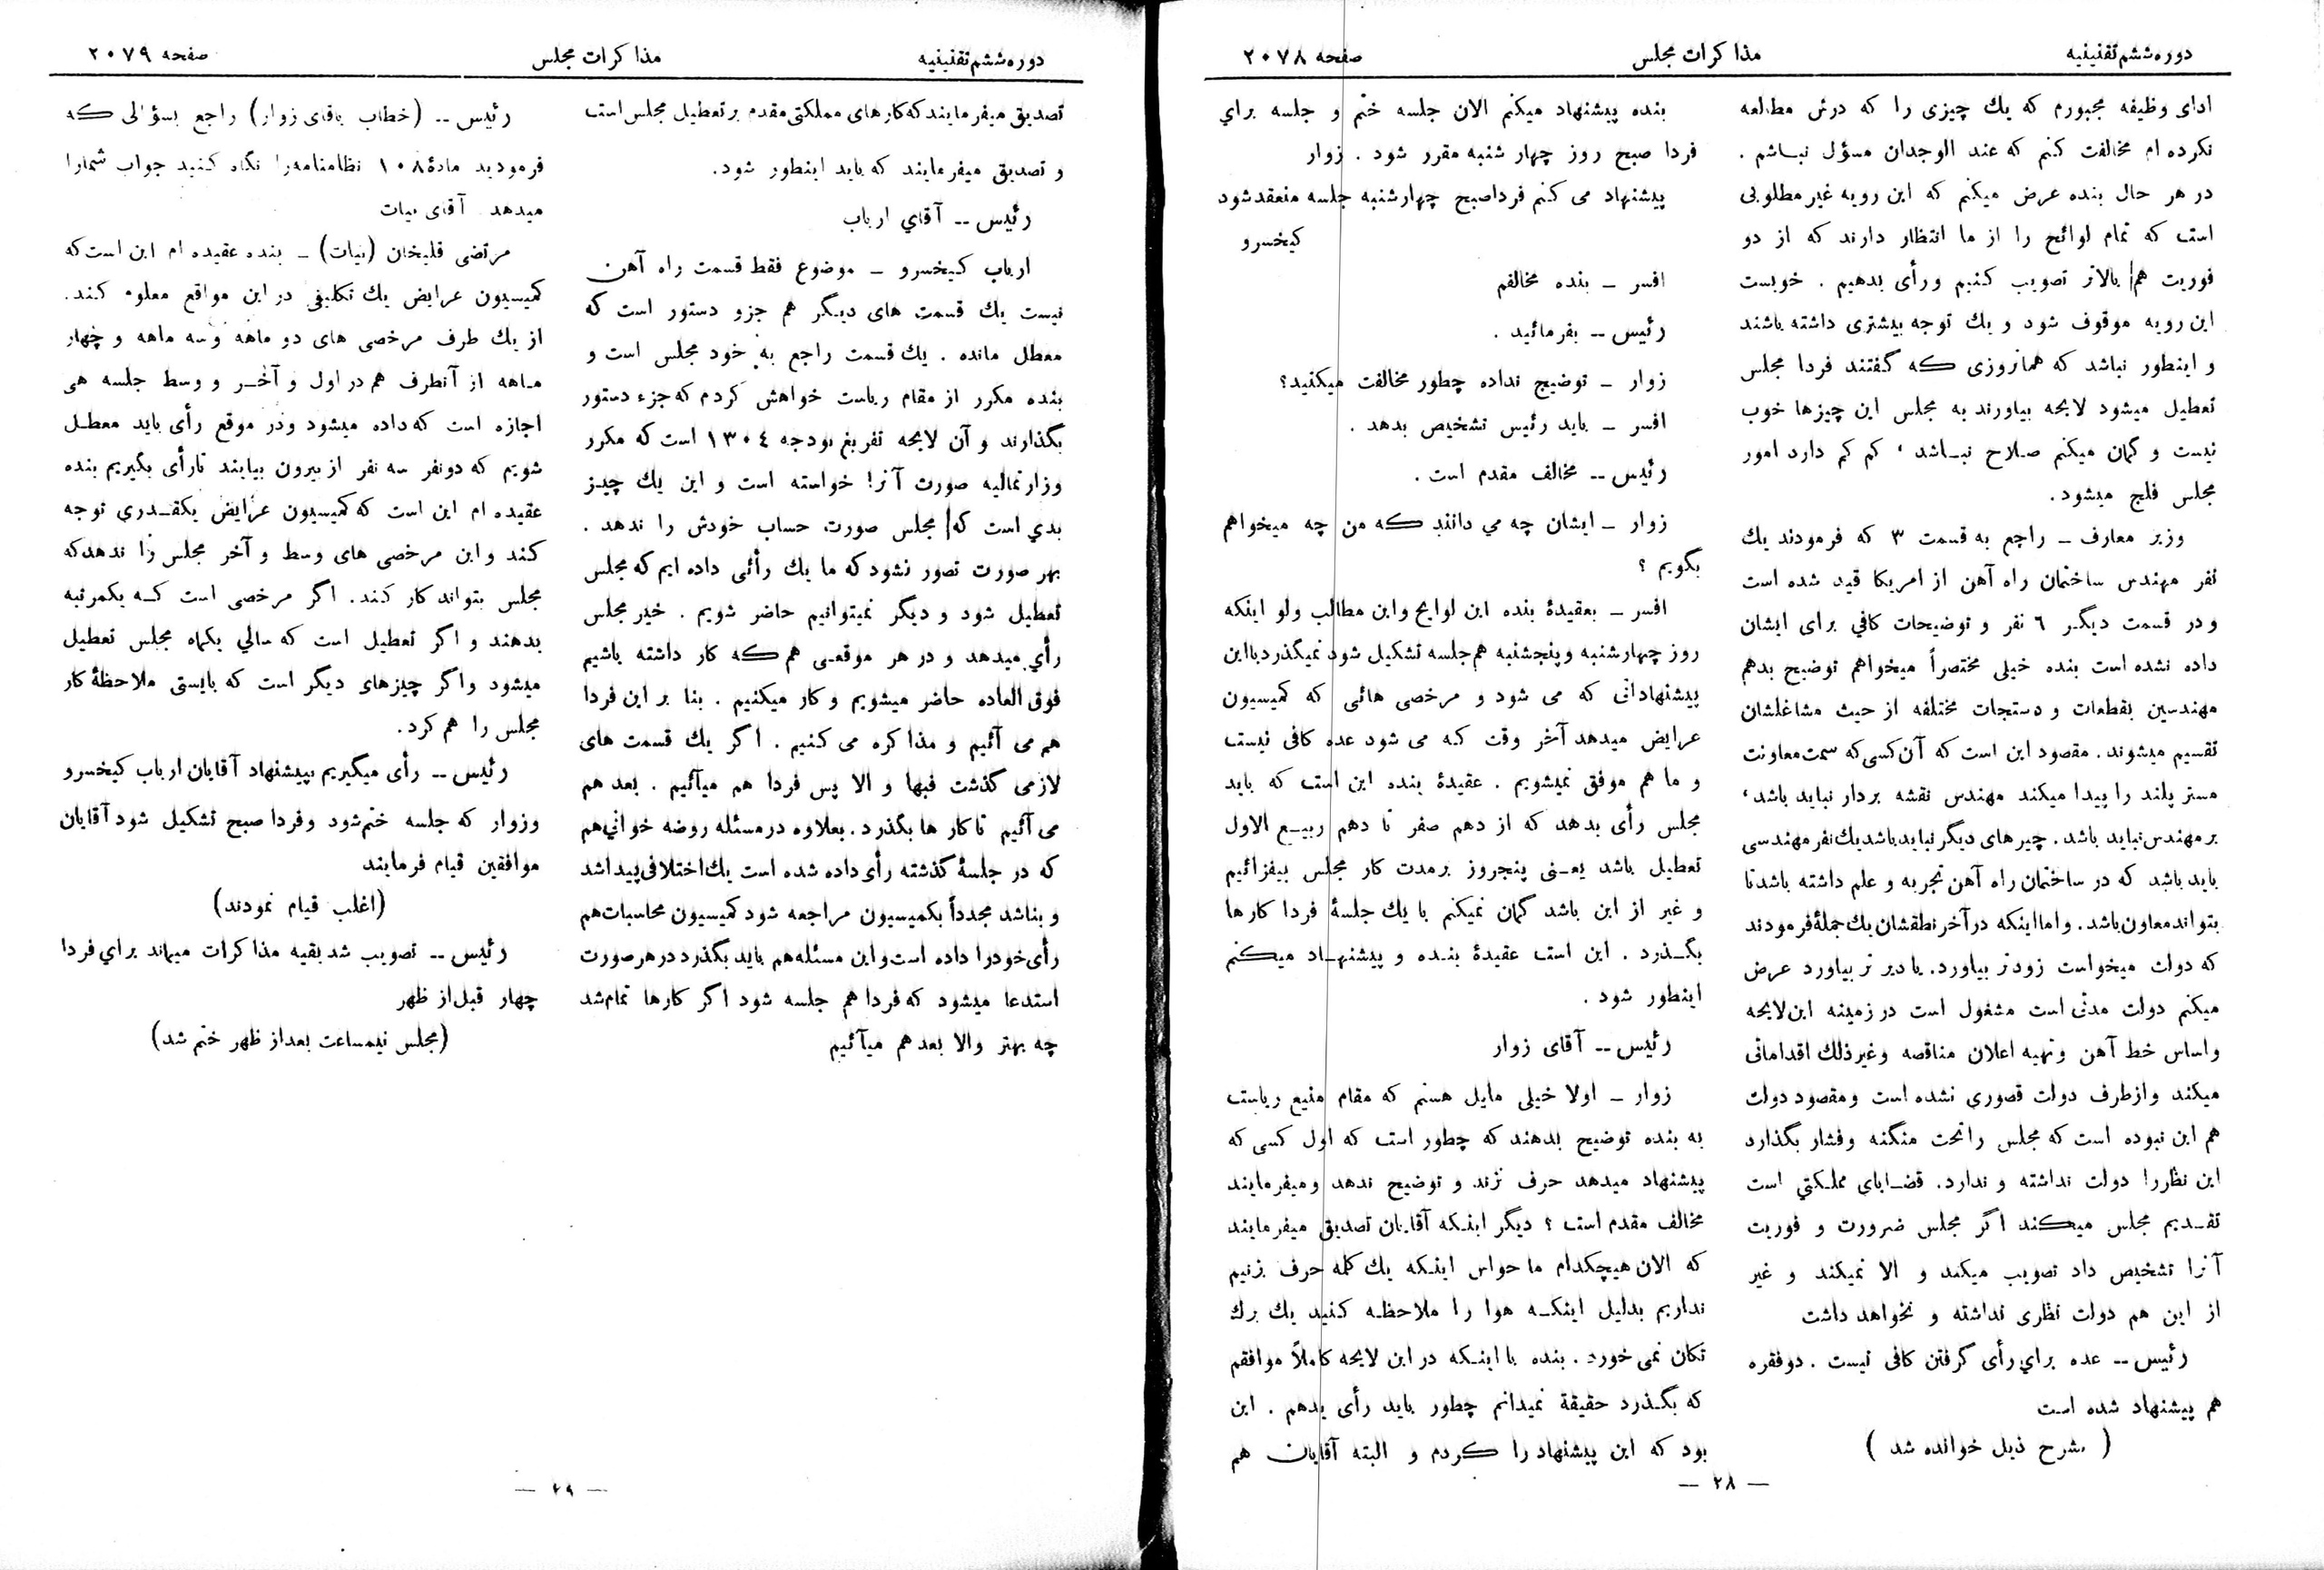 دوره ششم تقنینیه
مذاکرات مجلس
صفحه ۲۰۷۸
ادای وظیفه مجبورم که یك چیزی را که درش مطالعه
نکرده ام مخالفت کنم که عند الوجدان مسؤل نباشم .
در هر حال بنده عرض میکنم که این رویه غیر مطلوبی
است که تمام لوائح را از ما انتظار دارند که از دو
فوریت هم بالاتر تصویب کنیم ورأی بدهیم . خوبست
این رویه موقوف شود و یك توجه بیشتری داشته باشند
و اینطور نباشد که همانروزی که گفتند فردا مجلس
تعطیل میشود لایحه بیاورند به مجلس این چیزها خوب
نیست و گمان میکنم صلاح نباشد ، کم کم دارد امور
مجلس فلج میشود.
وزیر معارف ــ راجع به قسمت ۳ که فرمودند یك
نفر مهندس ساختمان راه آهن از امریکا قید شده است
و در قسمت دیگر ٦ نفر و توضیحات کافی برای ایشان
داده نشده است بنده خیلی مختصراً میخواهم توضیح بدهم
مهندسین بقطعات و دستجات مختلفه از حیث مشاغلشان
تقسیم میشوند . مقصود این است که آن کسی که سمت معاونت
مستر پلند را پیدا میکند مهندس نقشه بردار نباید باشد ،
بر مهندس نباید باشد . چیز های دیگر نباید باشد یك نفر مهندسی
باید باشد که در ساختمان راه آهن تجربه و علم داشته باشد تا
بتواند معاون باشد . واما اینکه در آخر نطقشان یك جملهٔ فرمودند
که دولت میخواست زودتر بیاورد. یا دیر تر بیاورد عرض
میکنم دولت مدتی است مشغول است در زمینه این لایحه
واساس خط آهن وتهیه اعلان مناقصه وغیر ذلك اقداماتی
میکند وازطرف دولت قصوری نشده است ومقصود دولت
هم این نبوده است که مجلس را تحت منگنه وفشار بگذارد
این نظر را دولت نداشته و ندارد. قضایای مملکتي است
تقدیم مجلس میکند اگر مجلس ضرورت و فوریت
آنرا تشخیص داد تصویب میکند و الا نمیکند و غیر
از این هم دولت نظری نداشته و نخواهد داشت
رئیس ــ عده براي رأی گرفتن کافی نیست . دوفقره
هم پیشنهاد شده است
( بشرح ذیل خوانده شد )
بنده پیشنهاد میکنم الان جلسه ختم و جلسه براي
فردا صبح روز چهار شنبه مقرر شود . زوار
پیشنهاد می کنم فرداصبح چهارشنبه جلسه منعقد شود
کیخسرو
افسر ــ بنده مخالفم
رئیس ــ بفرمائید .
زوار ــ توضیح نداده چطور مخالفت میکنید؟
افسر ــ باید رئیس تشخیص بدهد .
رئیس ــ مخالف مقدم است .
زوار ــ ایشان چه مي دانند که من چه میخواهم
بگویم ؟
افسر ــ بعقیدهٔ بنده این لوایح واین مطالب ولو اینکه
روز چهارشنبه وپنجشنبه هم جلسه تشکیل شود نمیگذرد بااین
پیشنهاداتی که می شود و مرخصی هائی که کمیسیون
عرایض میدهد آخر وقت که می شود عده کافی نیست
و ما هم موفق نمیشویم . عقیدهٔ بنده این است که باید
مجلس رأی بدهد که از دهم صفر تا دهم ربیع الاول
تعطیل باشد یعنی پنجروز برمدت کار مجلس بیفزائیم
و غیر از این باشد گمان نمیکنم با یك جلسهٔ فردا کارها
بگذرد . این است عقیدهٔ بنده و پیشنهاد میکنم
اینطور شود .
رئیس ــ آقای زوار
زوار ــ اولا خیلی مایل هستم که مقام منیع ریاست
به بنده توضیح بدهند که چطور است که اول کسی که
پیشنهاد میدهد حرف نزند و توضیح ندهد ومیفرمایند
مخالف مقدم است ؟ دیگر اینکه آقایان تصدیق میفرمایند
که الان هیچکدام ما حواس اینکه یك کلمه حرف بزنیم
نداریم بدلیل اینکه هوا را ملاحظه کنید یك برك
تکان نمی خورد . بنده با اینکه در این لایحه کاملاً موافقم
که بگذرد حقیقة نمیدانم چطور باید رأی بدهم . این
بود که این پیشنهاد را کردم و البته آقایان هم
— ۲۸ —
دوره ششم تقنینیه
مذاکرات مجلس
صفحه ۲۰۷۹
تصدیق میفرمایند که کارهای مملکتی مقدم بر تعطیل مجلس است
و تصدیق میفرمایند که باید اینطور شود.
رئیس ــ آقاي ارباب
ارباب کیخسرو ــ موضوع فقط قسمت راه آهن
نیست یك قسمت های دیگر هم جزو دستور است که
معطل مانده . یك قسمت راجع به خود مجلس است و
بنده مکرر از مقام ریاست خواهش کردم که جزء دستور
بگذارند و آن لایحه تفریغ بودجه ۱۳۰٤ است که مکرر
وزارتمالیه صورت آنرا خواسته است و این یك چیز
بدي است که مجلس صورت حساب خودش را ندهد .
بهر صورت تصور نشود که ما یك رأئی داده ایم که مجلس
تعطیل شود و دیگر نمیتوانیم حاضر شویم . خیر مجلس
رأي میدهد و در هر موقعی هم که کار داشته باشیم
فوق العاده حاضر میشویم وکار میکنیم . بنا بر این فردا
هم می آئیم و مذاکره می کنیم . اگر یك قسمت های
لازمی گذشت فبها و الا پس فردا هم میآئیم . بعد هم
می آئیم تا کار ها بگذرد . بعلاوه در مسئله روضه خواني هم
که در جلسهٔ گذشته رأی داده شده است یك اختلافی پیدا شد
و بناشد مجدداً بکمیسیون مراجعه شود کمیسیون محاسبات هم
رأی خودرا داده است و این مسئله هم باید بگذرد در هر صورت
استدعا میشود که فردا هم جلسه شود اگر کارها تمام شد
چه بهتر والا بعد هم میآئیم
رئیس ــ (خطاب بآقای زوار) راجع بسؤالی که
فرمودید مادهٔ ۱۰۸ نظامنامه را نگاه کنید جواب شمارا
میدهد آقای بیات
مرتضی قلیخان (بیات) ــ بنده عقیده ام این است که
کمیسیون عرایض یك تکلیفی در این مواقع معلوم کند.
از یك طرف مرخصی های دو ماهه وسه ماهه و چهار
ماهه از آنطرف هم در اول و آخر و وسط جلسه هی
اجازه است که داده میشود ودر موقع رأی باید معطل
شویم که دونفر سه نفر از بیرون بیایند تا رأی بگیریم بنده
عقیده ام این است که کمیسیون عرایض یکقدري توجه
کند واین مرخصی های وسط و آخر مجلس را ندهد که
مجلس بتواند کار کند. اگر مرخصی است که یکمرتبه
بدهند و اگر تعطیل است که سالي یکماه مجلس تعطیل
میشود واگر چیزهای دیگر است که بایستی ملاحظهٔ کار
مجلس را هم کرد.
رئیس ــ رأی میگیریم بپیشنهاد آقایان ارباب کیخسرو
وزوار که جلسه ختم شود وفردا صبح تشکیل شود آقایان
موافقین قیام فرمایند
(اغلب قیام نمودند)
رئیس ــ تصویب شد بقیه مذاکرات میماند براي فردا
چهار قبل از ظهر
(مجلس نیمساعت بعداز ظهر ختم شد)
— ۲۹ —